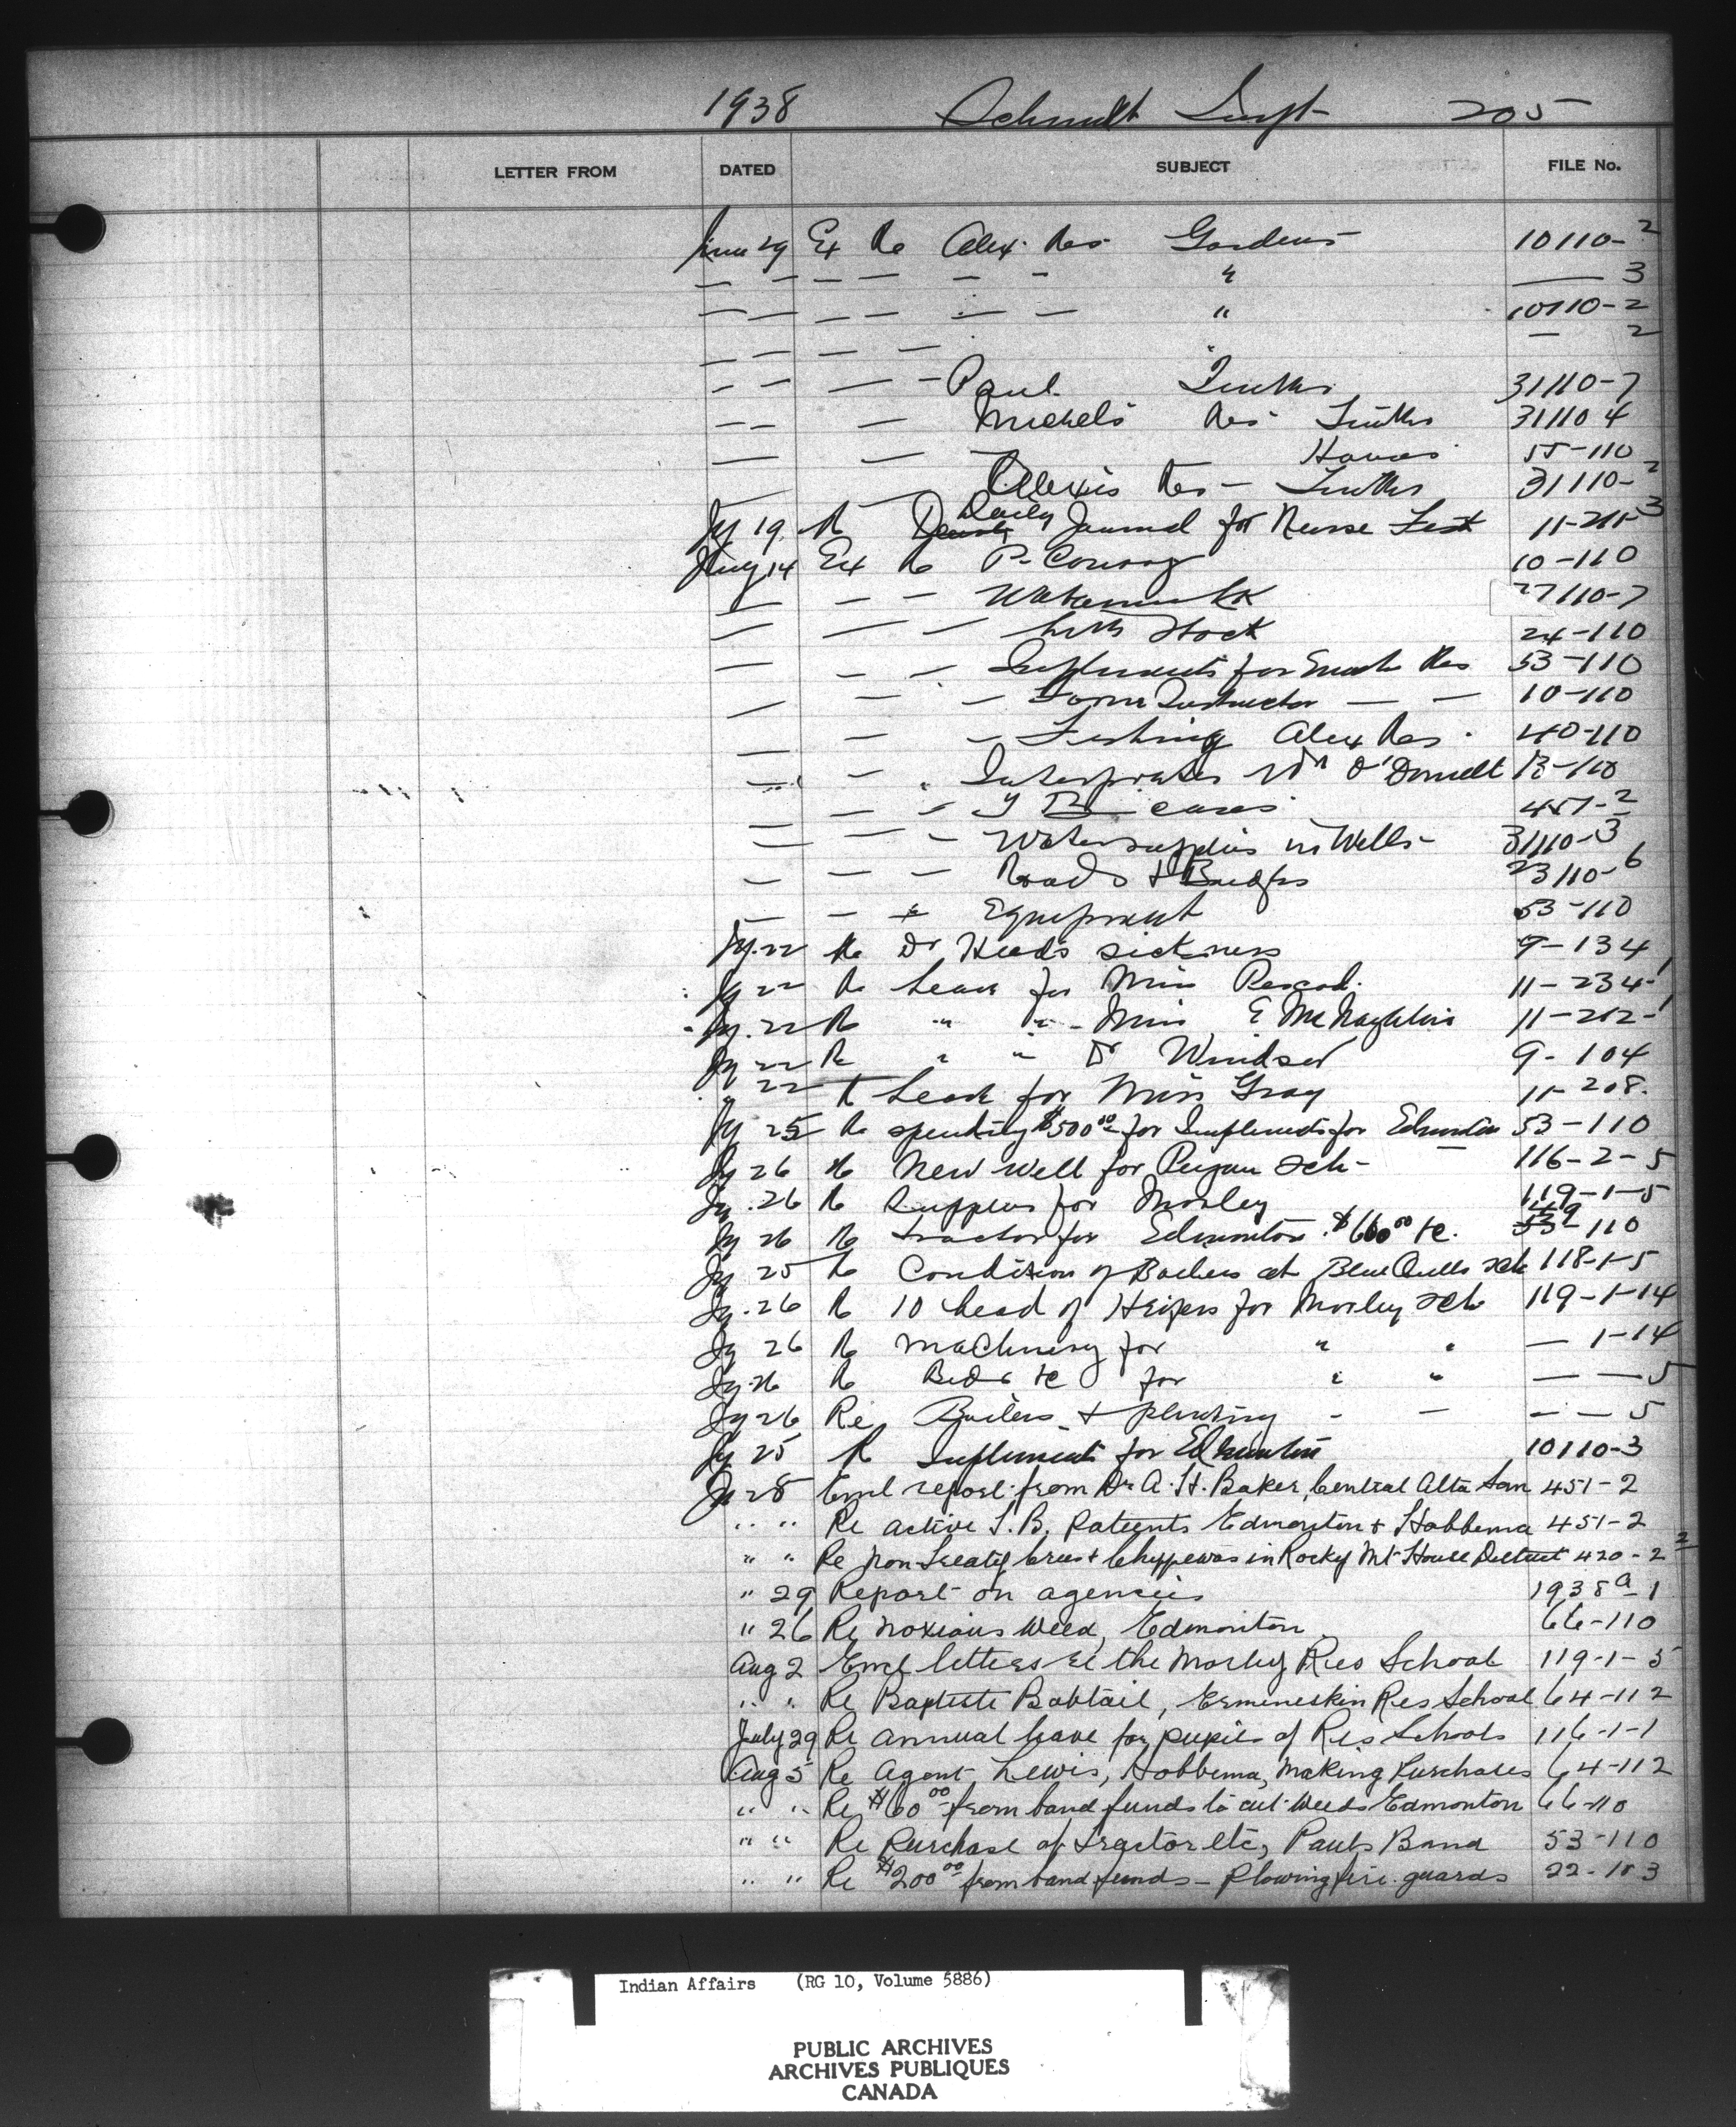 1938 Schmidt Supt 205
LETTER FROM DATED SUBJECT FILE No.
29 Ex Re Alex. Res. Gardens 10110-2
— — — — — — — " — 3
— — — — — — " 10110-2
— — — — " — 2
— — — — Paul 31110-7
— — — Michels Res 31110 4
— — — 55-110
— — Alexis Res — 31110-2
Jy 19 Re Daily Journal for Nurse 11-211-3
14 Ex Re P. Conroy 10-110
— — — 27110-7
— — — Stock 24-110
— — — Implements for Enoch Res 53-110
— — — Farm Instructor — — 10-110
— — Fishing Alex Res. 40-110
— — Interpreter Dr O'Donnell 13-110
— — — T B cases 451-2
— — — Water supplies in Wells- 31110-3
— — — Roads & Bridges 23110-6
— — Equipment 53-110
Jy. 22 Re Dr Heads sickness 9-134
Jy 22 Re Leave for Miss 11-234-1
Jy. 22 Re " " - Miss E McNaughton 11-212-1
Jy 22 Re " " Dr Windsor 9-104
" 22 R Leave for Miss Gray 11-208.
Jy 25 Re spending $500.00 for Implements for Edmonton 53-110
Jy 26 Re New well for Peigan Sch- 116-2-5
Jy. 26 Re Supplies for Morley 119-1-5
Jy 26 Re Tractor for Edmonton $600.00 &c. 53-110
Jy 25 Re Condition of Boilers at Blue Quills Sch 118-1-5
Jy. 26 Re 10 head of Heifers for Morley Sch 119-1-14
Jy 26 Re Machinery for " " — 1-14
Jy. 26 Re Beds &c for " " — — 5
Jy 26 Re Boilers & plumbing - — — — 5
Jy 25 Re Implements for Edmonton 10110-3
Jy 28 Encl report from Dr A. H. Baker, Central Alta San 451-2
" " Re active T.B. Patients Edmonton & Hobbema 451-2
" " Re non Treaty Crees & Chippewas in Rocky Mt House District 420-2-2
" 29 Report on agencies 1938a-1
" 26 Re noxious weed, Edmonton 66-110
Aug 2 Encl letters re the Morley Res School 119-1-5
" " Re Baptiste Bobtail, Ermineskin Res School 64-112
July 29 Re annual leave for pupils of Res Schools 116-1-1
Aug 5 Re Agent Lewis, Hobbema, Making Purchases 64-112
" " Re $60.00 from band funds to cut Weeds Edmonton 66-110
" " Re Purchase of tractor etc, Pauls Band 53-110
" " Re $200.00 from band funds - Plowing fire guards 22-103
Indian Affairs (RG 10, Volume 5886)
PUBLIC ARCHIVES
ARCHIVES PUBLIQUES
CANADA